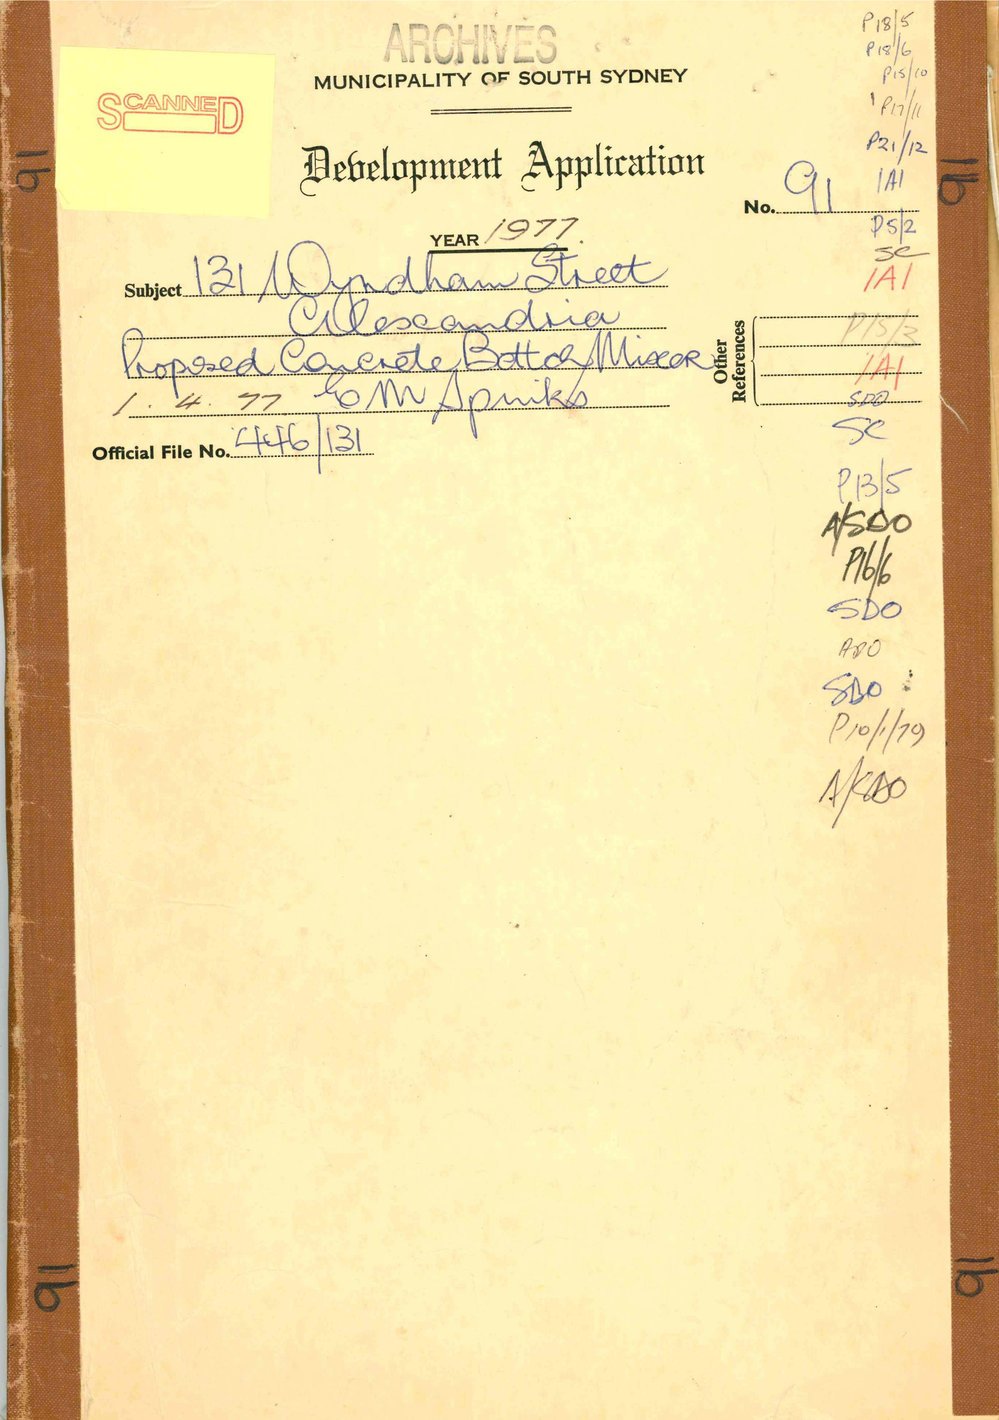 ARCHIVES
MUNICIPALITY OF SOUTH SYDNEY
SCANNED
Development Application
No. 91
YEAR 1977.
Subject 131 Wyndham Street
Alexandria
Proposed Concrete Batch Mixer
1. 4. 77 E M
Official File No. 446/131
Other References
P18/5
P18/6
P15/10
P17/11
P21/12
IAI
P5/2
SC
IAI
P15/2
IAI
SDO
SC
P13/5
A/SDO
P16/6
SDO
ADO
SDO
P10/1/79
A/SDO
91
91
91
91